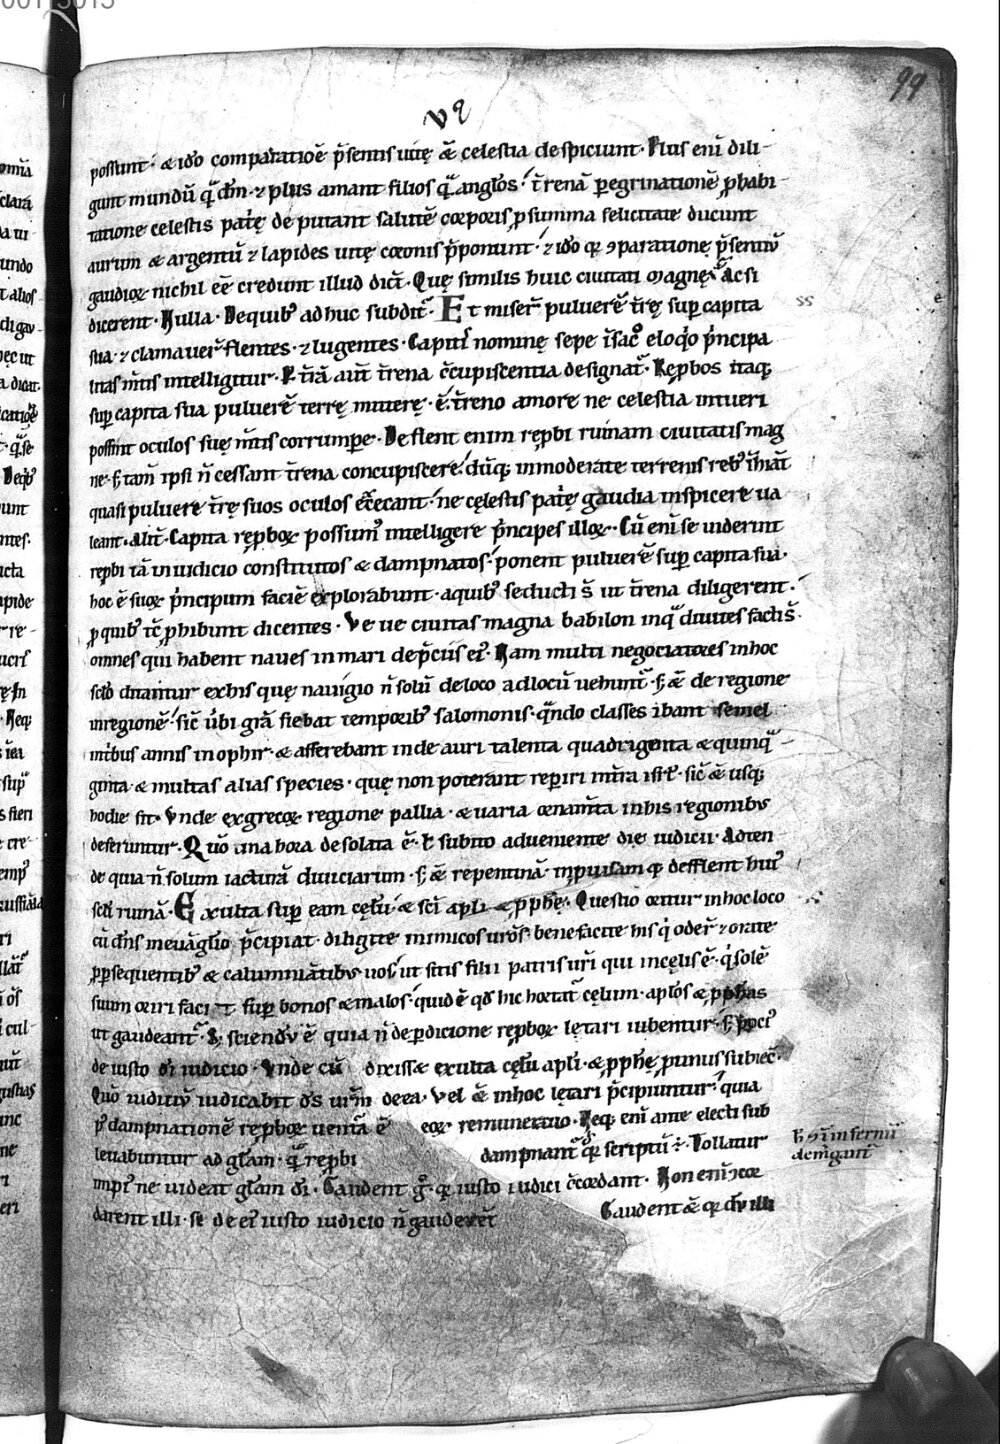 99
possunt· & iđo comparatiōe p̄sentis uitę ǣ celestia despiciunt· Plus eni᷑ dili-
gunt mundū q̄ dn̄m· ⁊ plus amant filios q̄ꝫ angl̓os· t̄renā peregrinationē p̱ habi-
tatione celestis patr̄ę deputant salutē corporis p̱ summa felicitate ducunt
aurum & argentū ⁊ lapides uitę coronis p̄ponunt· ⁊ iđo qꝛ ꝯparatione p̄sentiū
gaudioꝝ nichil ēē credunt illud dict̄· Quę similis huic ciuitati magnę· Ac si
dicerent· Nulla· De quibꝰ adhuc subdit᷑· Et miser̄ puluerē t̄rę sup̱ capita
sua· ⁊ clamauer̄ flentes· ⁊ lugentes· Capitis nomine sepe in sac̄ eloq̓o p̓ncipa
litas m̄tis intelligitur· P t̄rā aut̄ t̄rena c̄cupiscentia designat᷑· Rep̱bos itaqꝫ
sup̱ capita sua puluerē terrę mittere· ē· t̄reno amore ne celestia intueri
possint oculos suę m̄tis corrump̱e· Deflent enim rep̱bi ruinam ciuitatis mag
nę· s; tam̄ ipsi n̄ cessant t̄rena concupiscere· dūqꝫ inmoderate terrenis rebꝰ inhiāt
quasi puluere t̄rę suos oculos excecant· ne cęlestis patr̄ę gaudia inspicere ua
leant· Alit̄· Capita rep̱boꝝ possumꝰ intelligere p̓ncipes illoꝝ· Cū eni᷑ se uiderint
rep̱bi tā in iudicio constitutos & dampnatos· ponent puluerē sup̱ capita sua·
hoc ē suoꝝ p̓ncipum faciē explorabunt· a quibꝰ seducti s̄ ut t̄rena diligerent·
p̱ quibꝰ tc̄ p̱hibunt dicentes· Ve ue ciuitas magna babilon in q̄ diuites facti s̄·
omnes qui habent naues in mari de p̄ciis eiꝰ· Nam multi negociatores in hoc
sclo ditantur ex his quę nauigio n̄ solū de loco ad locū uehunt᷑· s; ǣ de regione
in regionē· sic̄ ūbi grā fiebat temporibꝰ salomonis· q̄ndo classes ibant semel
in tribus annis in ophir· & afferebant inde auri talenta quadrigenta & quinq̄-
ginta & multas alias species· quę non poterant rep̱iri in t̄ra isrl̄· sic̄ ǣ usqꝫ
hodie fit· Vnde ex grecoꝝ regione pallia· & uaria ornam̄ta in his regionibꝰ
deferuntur· Qūo una hora desolata ē· t̄ subito adueniente die iudicii· Adten
de quia n̄ solum iacturā diuiciarum· s; ǣ repentinā
scđi ruinā· Exulta sup̱ eam cęlū· & sc̄i apl̄i & p̱phę· Questio oritur in hoc loco
cū dn̄s in euāgl̄io p̄cipiat· diligite inimicos uros̄· benefacite his q̓ oder̄ ⁊ orate
p̱ p̱sequentibꝰ & calumniātibꝰ uos· ut sitis filii patris ur̄i qui in cęlis ē· q̓ solē
suum oriri facit sup̱ bonos & malos· quid ē qđ hic hortat᷑ cęlum· apl̓os & p̱phas
ut gaudeant· S; sciendū ē quia n̄ de p̱dicione rep̱boꝝ lętari iubentur· s; pociꝰ
de iusto dī iudicio· Vnde cū dixisset exulta cęlū apl̄i· & p̱phę
Qūo iudiciū iudicabit ds̄ ur̄m de ea· Vel ǣ in hoc lętari p̄cipiuntur· quia
p̱ dampnationē rep̱boꝝ uenit̄ ē eoꝝ remuneratio· Neqꝫ eni᷑ ante electi sub
leuabuntur ad gl̄am· q̄ rep̱bi dampnant᷑ qꝛ scriptū ÷· Tollatur
impiꝰ ne uideat gl̄am dī· Gaudent g̊· qꝛ iusto iudici c̄cordant· Non eni᷑
darent illi· se de eiꝰ iusto iudicio n̄ gauderēt Gaudent ǣ qꝛ cū illi